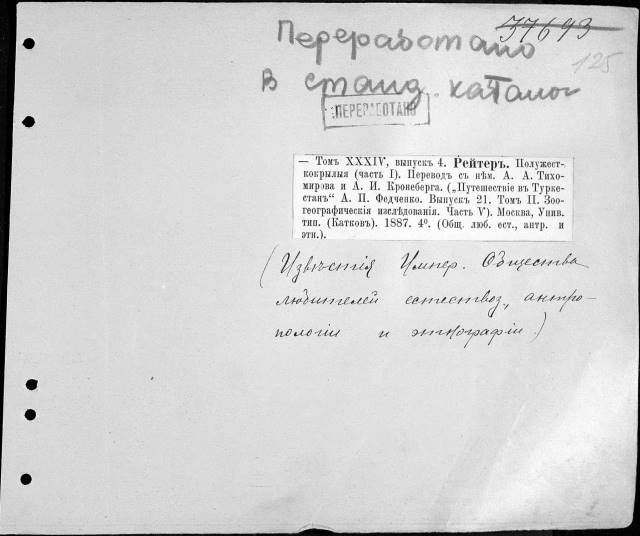 37693
Переработано
125
в станд. каталог
ПЕРЕРАБОТАНО
— Томъ XXXIV, выпускъ 4. Рейтеръ. Полужест-
кокрылыя (часть I). Переводъ съ нѣм. А. А. Тихо-
мирова и А. И. Кронеберга. („Путешествіе въ Турке-
станъ“ А. П. Федченко. Выпускъ 21. Томъ II. Зоо-
географическія изслѣдованія. Часть V). Москва, Унив.
тип. (Катковъ). 1887. 4⁰. (Общ. люб. ест., антр. и
этн.).
(Извѣстія Импер. Общества
любителей естествоз., антро-
пологіи и этнографіи.)